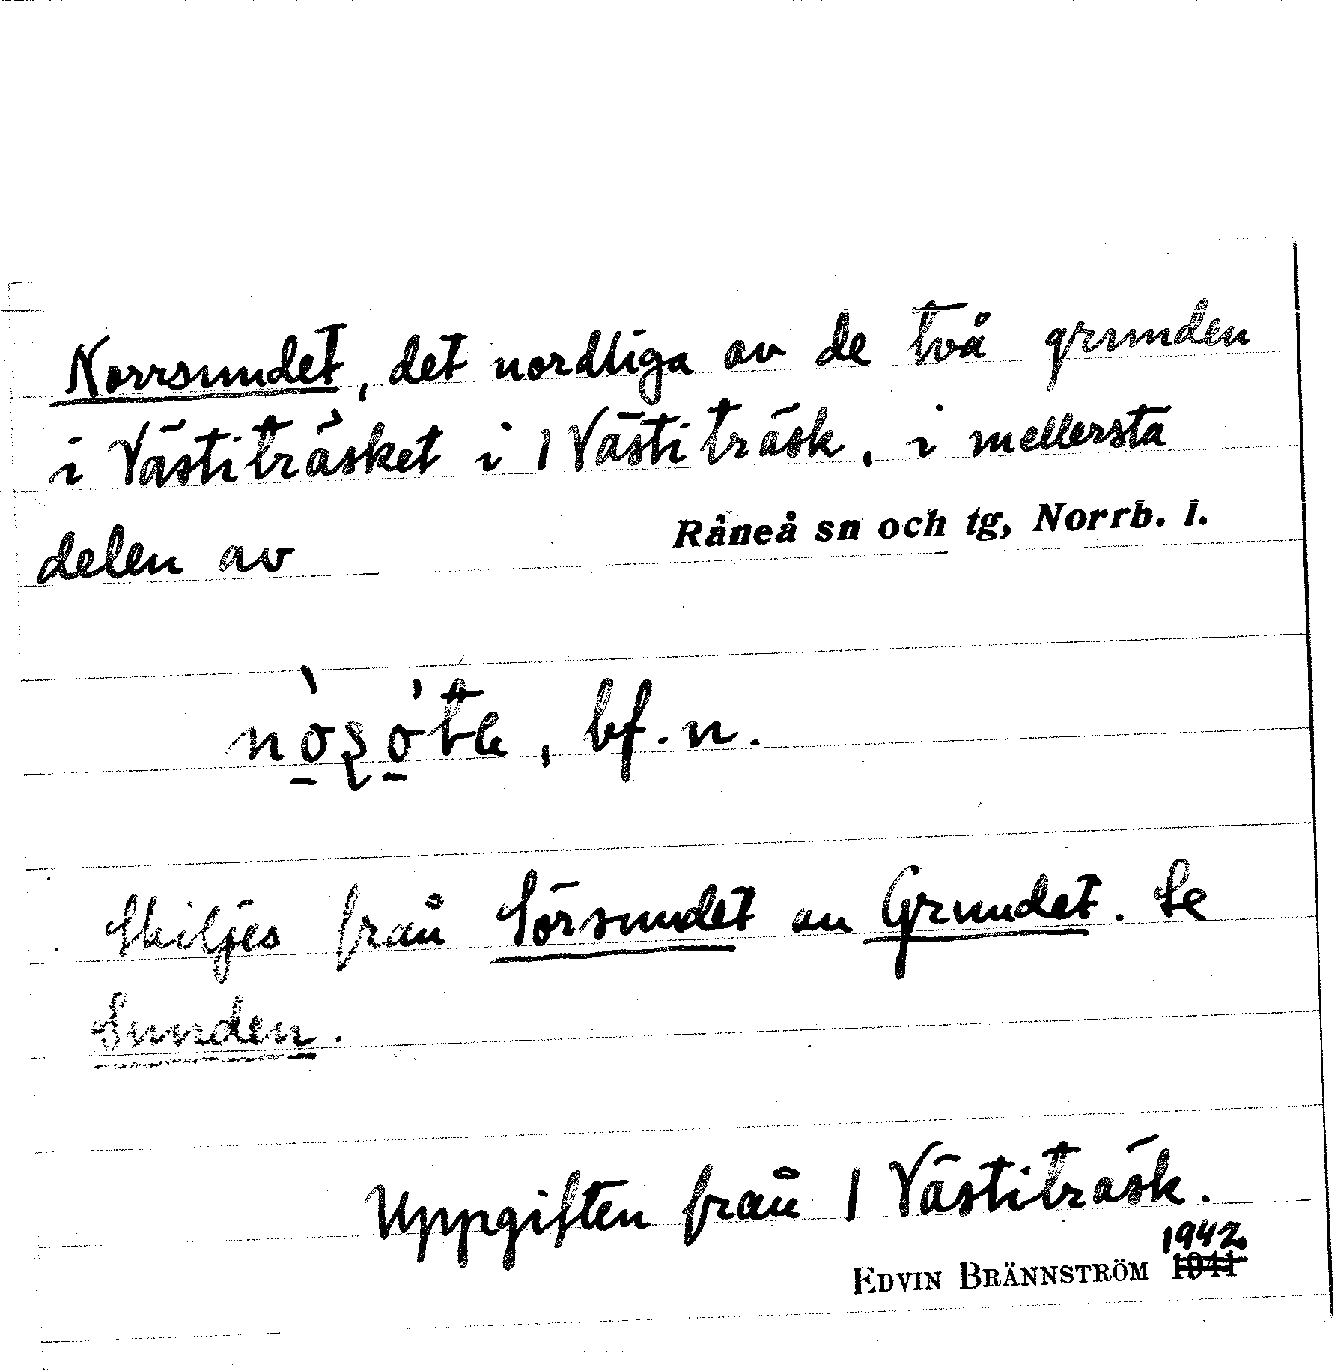 Norrsundet, det nordliga av de två grunden
i Västiträsket i 1 Västiträsk, i mellersta
delen av Råneå sn och tg, Norrb. l.
bf. n.
Skiljes från Sörsundet av Grundet. Se
Sunden.
Uppgiften från 1 Västiträsk.
1942.
EDVIN BRÄNNSTRÖM 1941